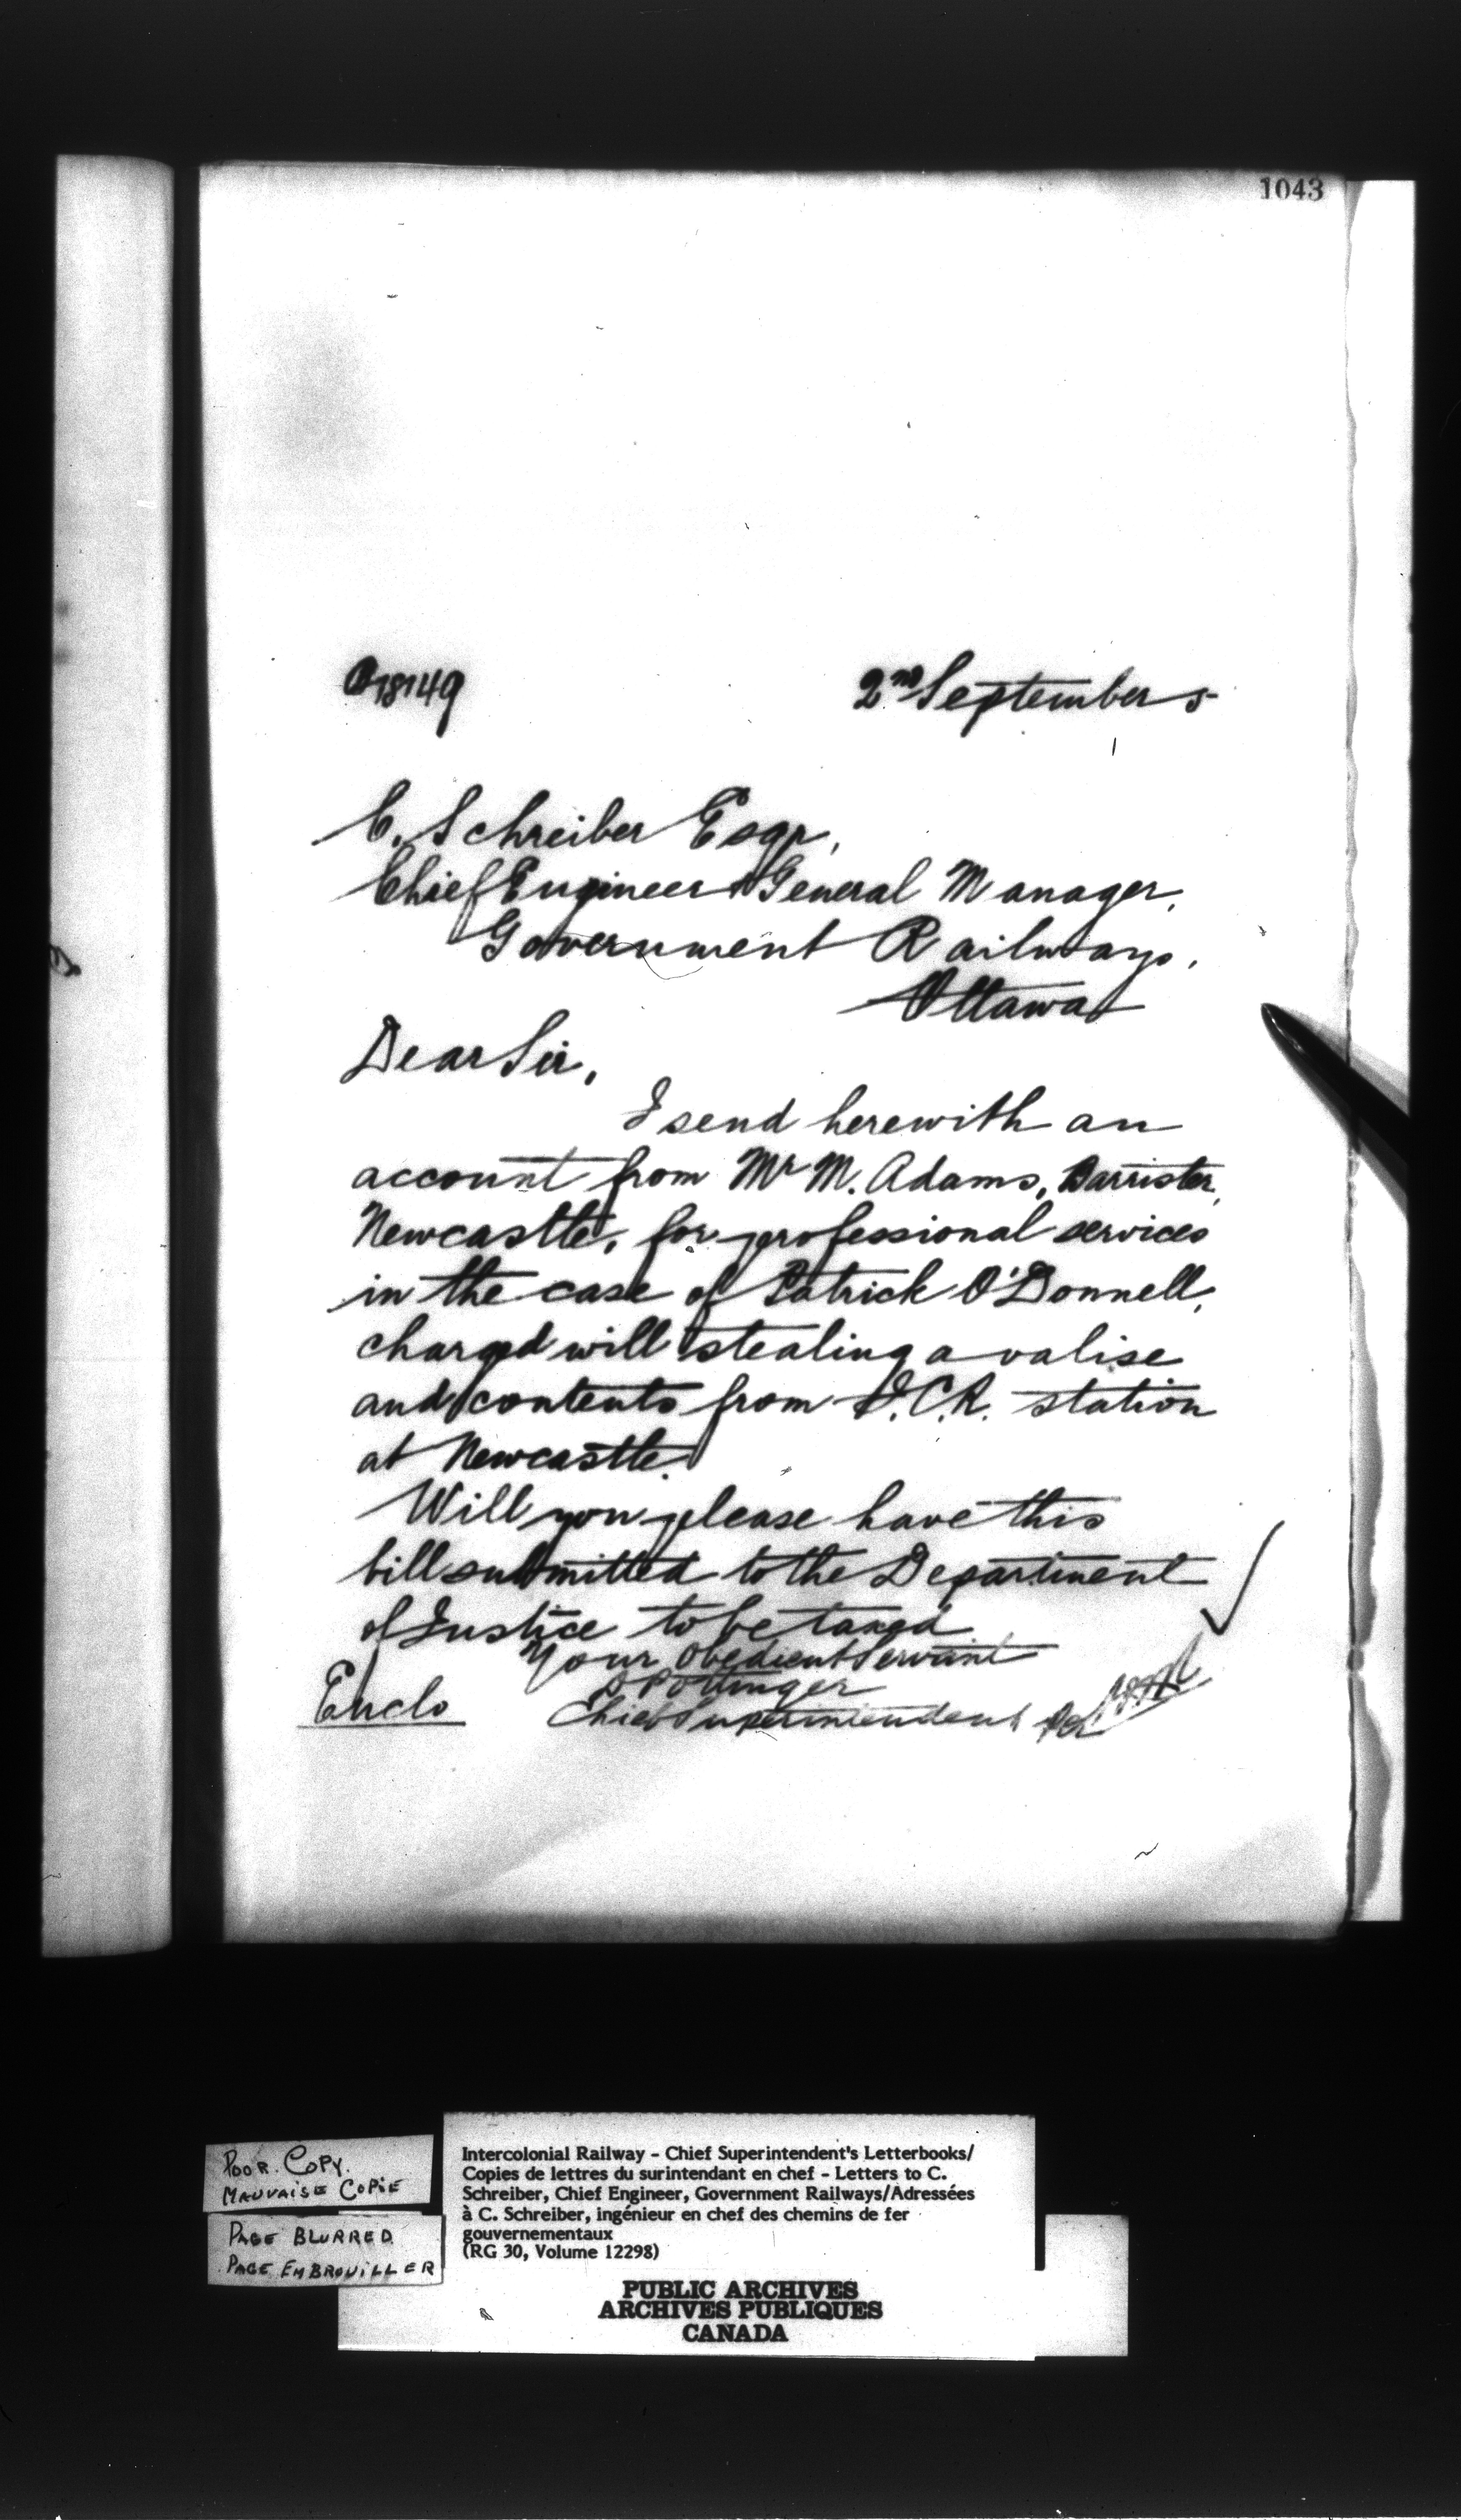 1043
18149
2nd September 5
C. Schreiber Esqr,
Chief Engineer & General Manager,
Government Railways,
Ottawa
Dear Sir,
I send herewith an
account from Mr M. Adams, Barrister,
Newcastle, for professional services
in the case of Patrick O'Donnell,
charged will stealing a valise
and contents from I.C.R. station
at Newcastle.
Will you please have this
bill submitted to the Department
of Justice to be taxed
Your Obedient Servant
D Pottinger
Enclo
Chief Superintendent Per
POOR COPY.
MAUVAISE COPIE
PAGE BLURRED.
PAGE EMBROUILLER
Intercolonial Railway - Chief Superintendent's Letterbooks/
Copies de lettres du surintendant en chef - Letters to C.
Schreiber, Chief Engineer, Government Railways/Adressées
à C. Schreiber, ingénieur en chef des chemins de fer
gouvernementaux
(RG 30, Volume 12298)
PUBLIC ARCHIVES
ARCHIVES PUBLIQUES
CANADA